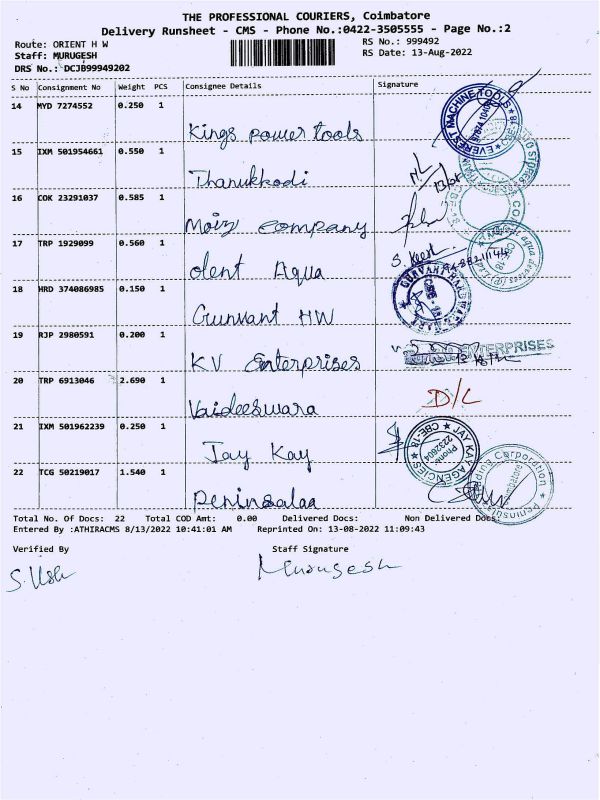 THE PROFESSIONAL COURIERS, Coimbatore
Delivery Runsheet - CMS - Phone No.:0422-3505555 - Page No.:2
Route: ORIENT H W
RS No.: 999492
Staff: MURUGESH
RS Date: 13-Aug-2022
DRS No.: DCJB99949202
S No Consignment No Weight PCS Consignee Details Signature
14 MYD 7274552 0.250 1
Kings power tools
EVEREST MACHINE TOOLS
15 IXM 501954661 0.550 1
Thanukkodi
16 COK 23291037 0.585 1
Moiz company
17 TRP 1929099 0.560 1
olent Aqua
18 HRD 374086985 0.150 1
Gunvant HW
19 RJP 2980591 0.200 1
KV Enterprises
ENTERPRISES
20 TRP 6913046 2.690 1
Vaideeswara
D/L
21 IXM 501962239 0.250 1
Jay Kay
JAY KAY AGENCIES CBE-18
Phone: 2232604
22 TCG 50219017 1.540 1
Peninsalaa
Total No. Of Docs: 22 Total COD Amt: 0.00 Delivered Docs: Non Delivered Docs:
Entered By :ATHIRACMS 8/13/2022 10:41:01 AM Reprinted On: 13-08-2022 11:09:43
Verified By Staff Signature
Murugesh